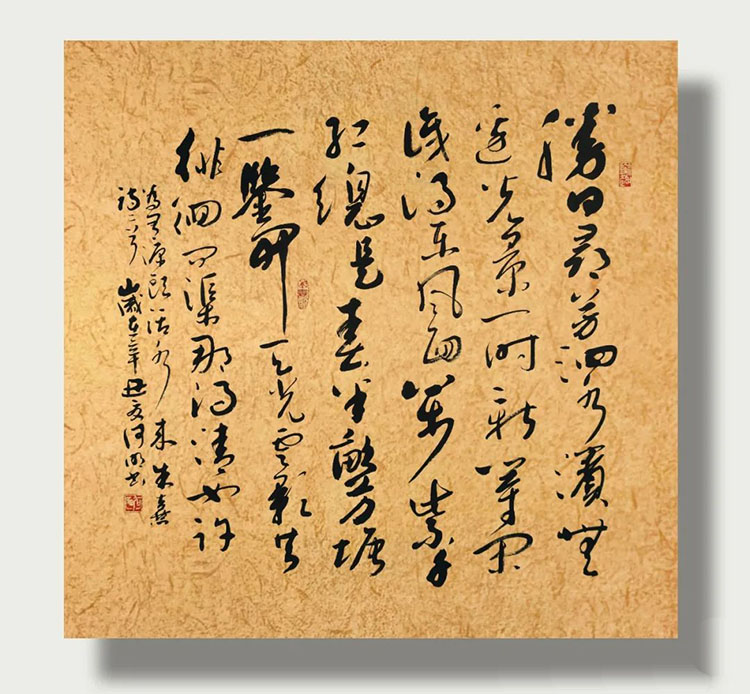 勝日尋芳泗水濱無
邊光景一時新等閑
識得東風面萬紫千
紅總是春半畝方塘
一鑒開天光雲影共
徘徊問渠那得清如許
為有源頭活水來朱熹
詩二首歲在辛丑夏書